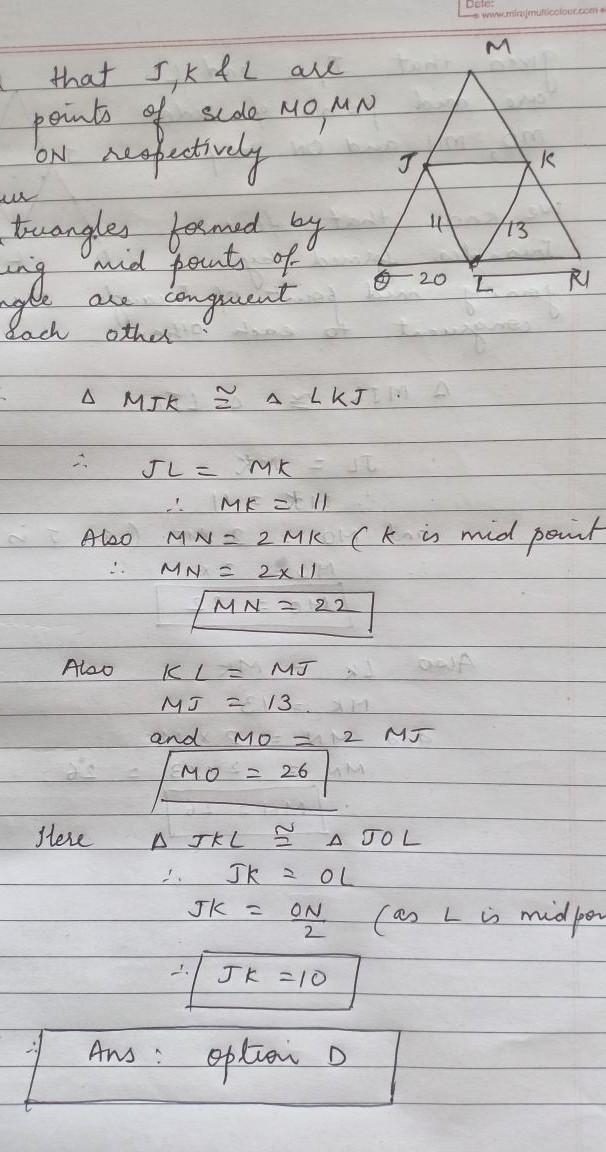 Date:
www.mirajmulticolour.com
M
that J, K & L are
points of side MO, MN
ON respectively
J
K
triangles formed by
11
13
ing mid points of
O 20 L N
ngle are congruent
each other.
Δ MJK ≅ Δ LKJ.
∴ JL = MK
∴ MK = 11
Also MN = 2 MK ( K is mid point
∴ MN = 2x11
MN = 22
Also KL = MJ
MJ = 13.
and MO = 2 MJ
MO = 26
Here Δ JKL ≅ Δ JOL
∴ JK = OL
JK = ON/2 (as L is midpo
∴ JK = 10
∴ Ans : option D